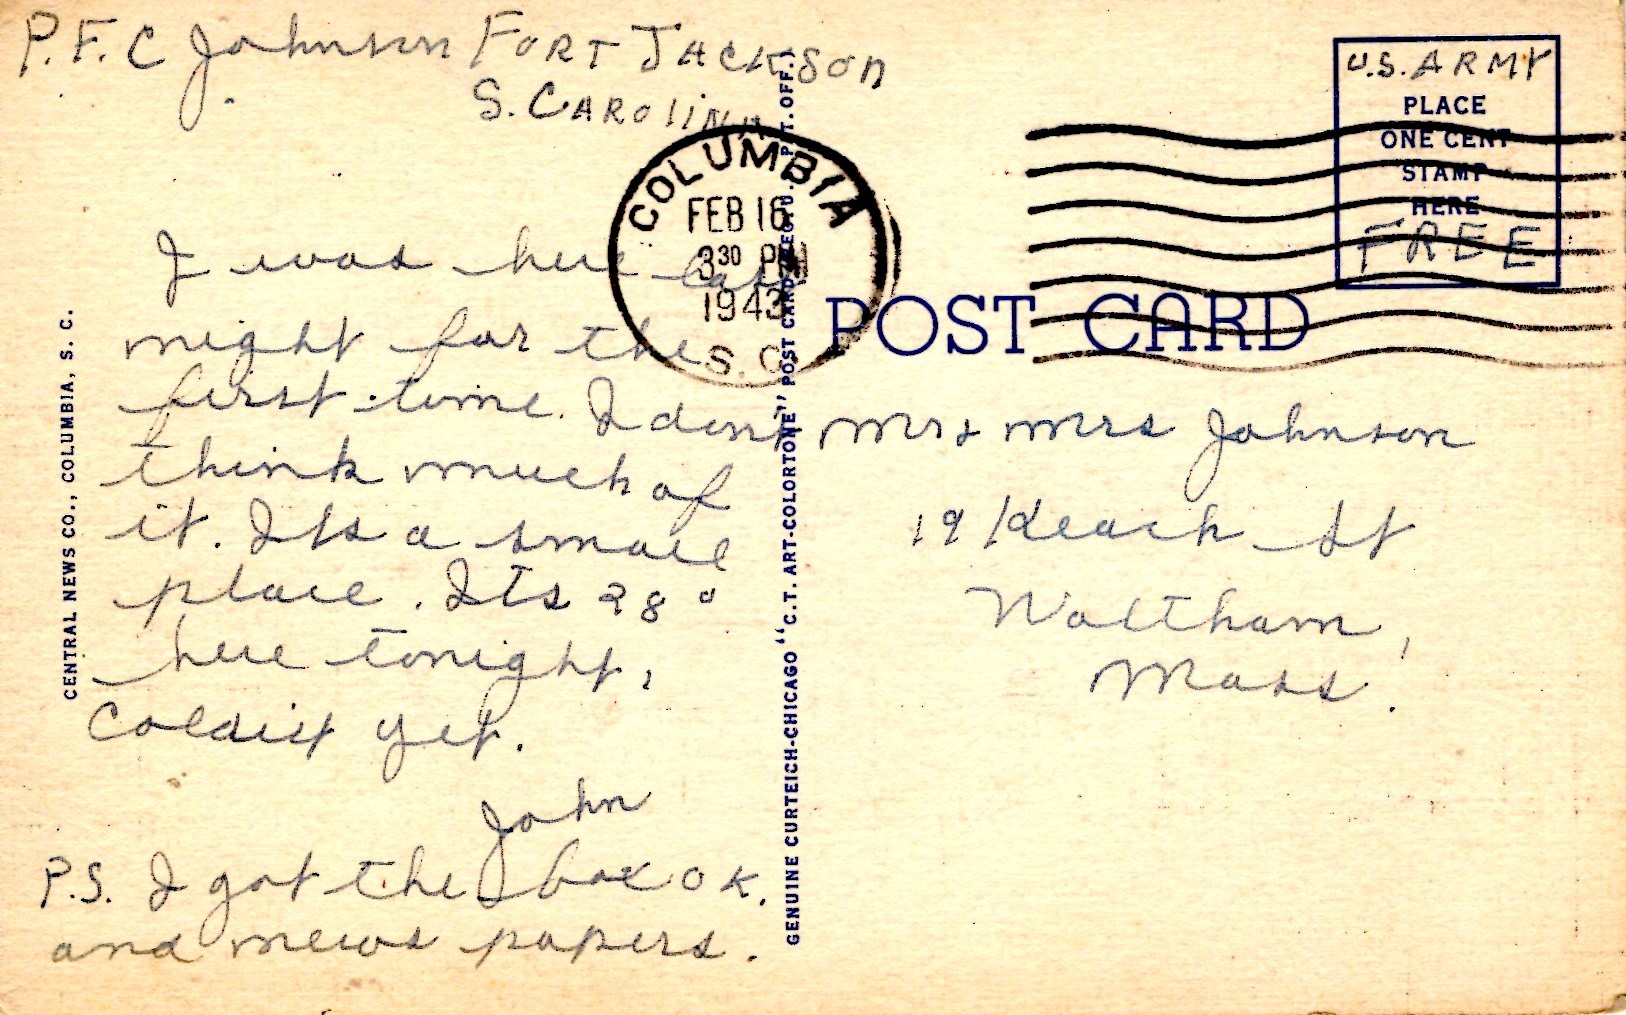 P.F.C Johnson FORT JACKSON
S. CAROLINA
U.S. ARMY
PLACE
ONE CENT
STAMP
HERE
FREE
COLUMBIA
FEB 16
3 30 PM
1943
S. C.
POST CARD
I was here last
night for the
first time. I dont
think much of
it. Its a small
place. Its 28°
here tonight,
coldist yet.
John
P.S. I got the box OK.
and news papers.
Mr & Mrs Johnson
19 Keach St
Waltham,
Mass.
CENTRAL NEWS CO., COLUMBIA, S. C.
GENUINE CURTEICH-CHICAGO "C.T. ART-COLORTONE" POST CARD (REG. U.S. PAT. OFF.)